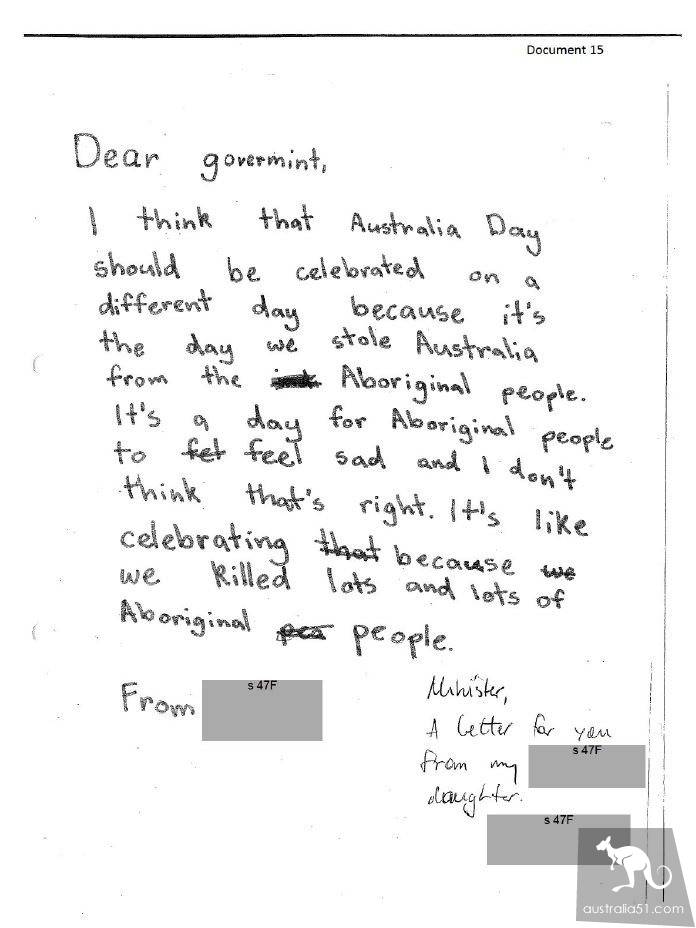 Document 15
Dear govermint,
I think that Australia Day
should be celebrated on a
different day because it's
the day we stole Australia
from the Aboriginal people.
It's a day for Aboriginal people
to fet feel sad and I don't
think that's right. It's like
celebrating that because we
we killed lots and lots of
Aboriginal pea people.
From s 47F
Minister,
A letter for you
from my s 47F
daughter.
s 47F
australia51.com